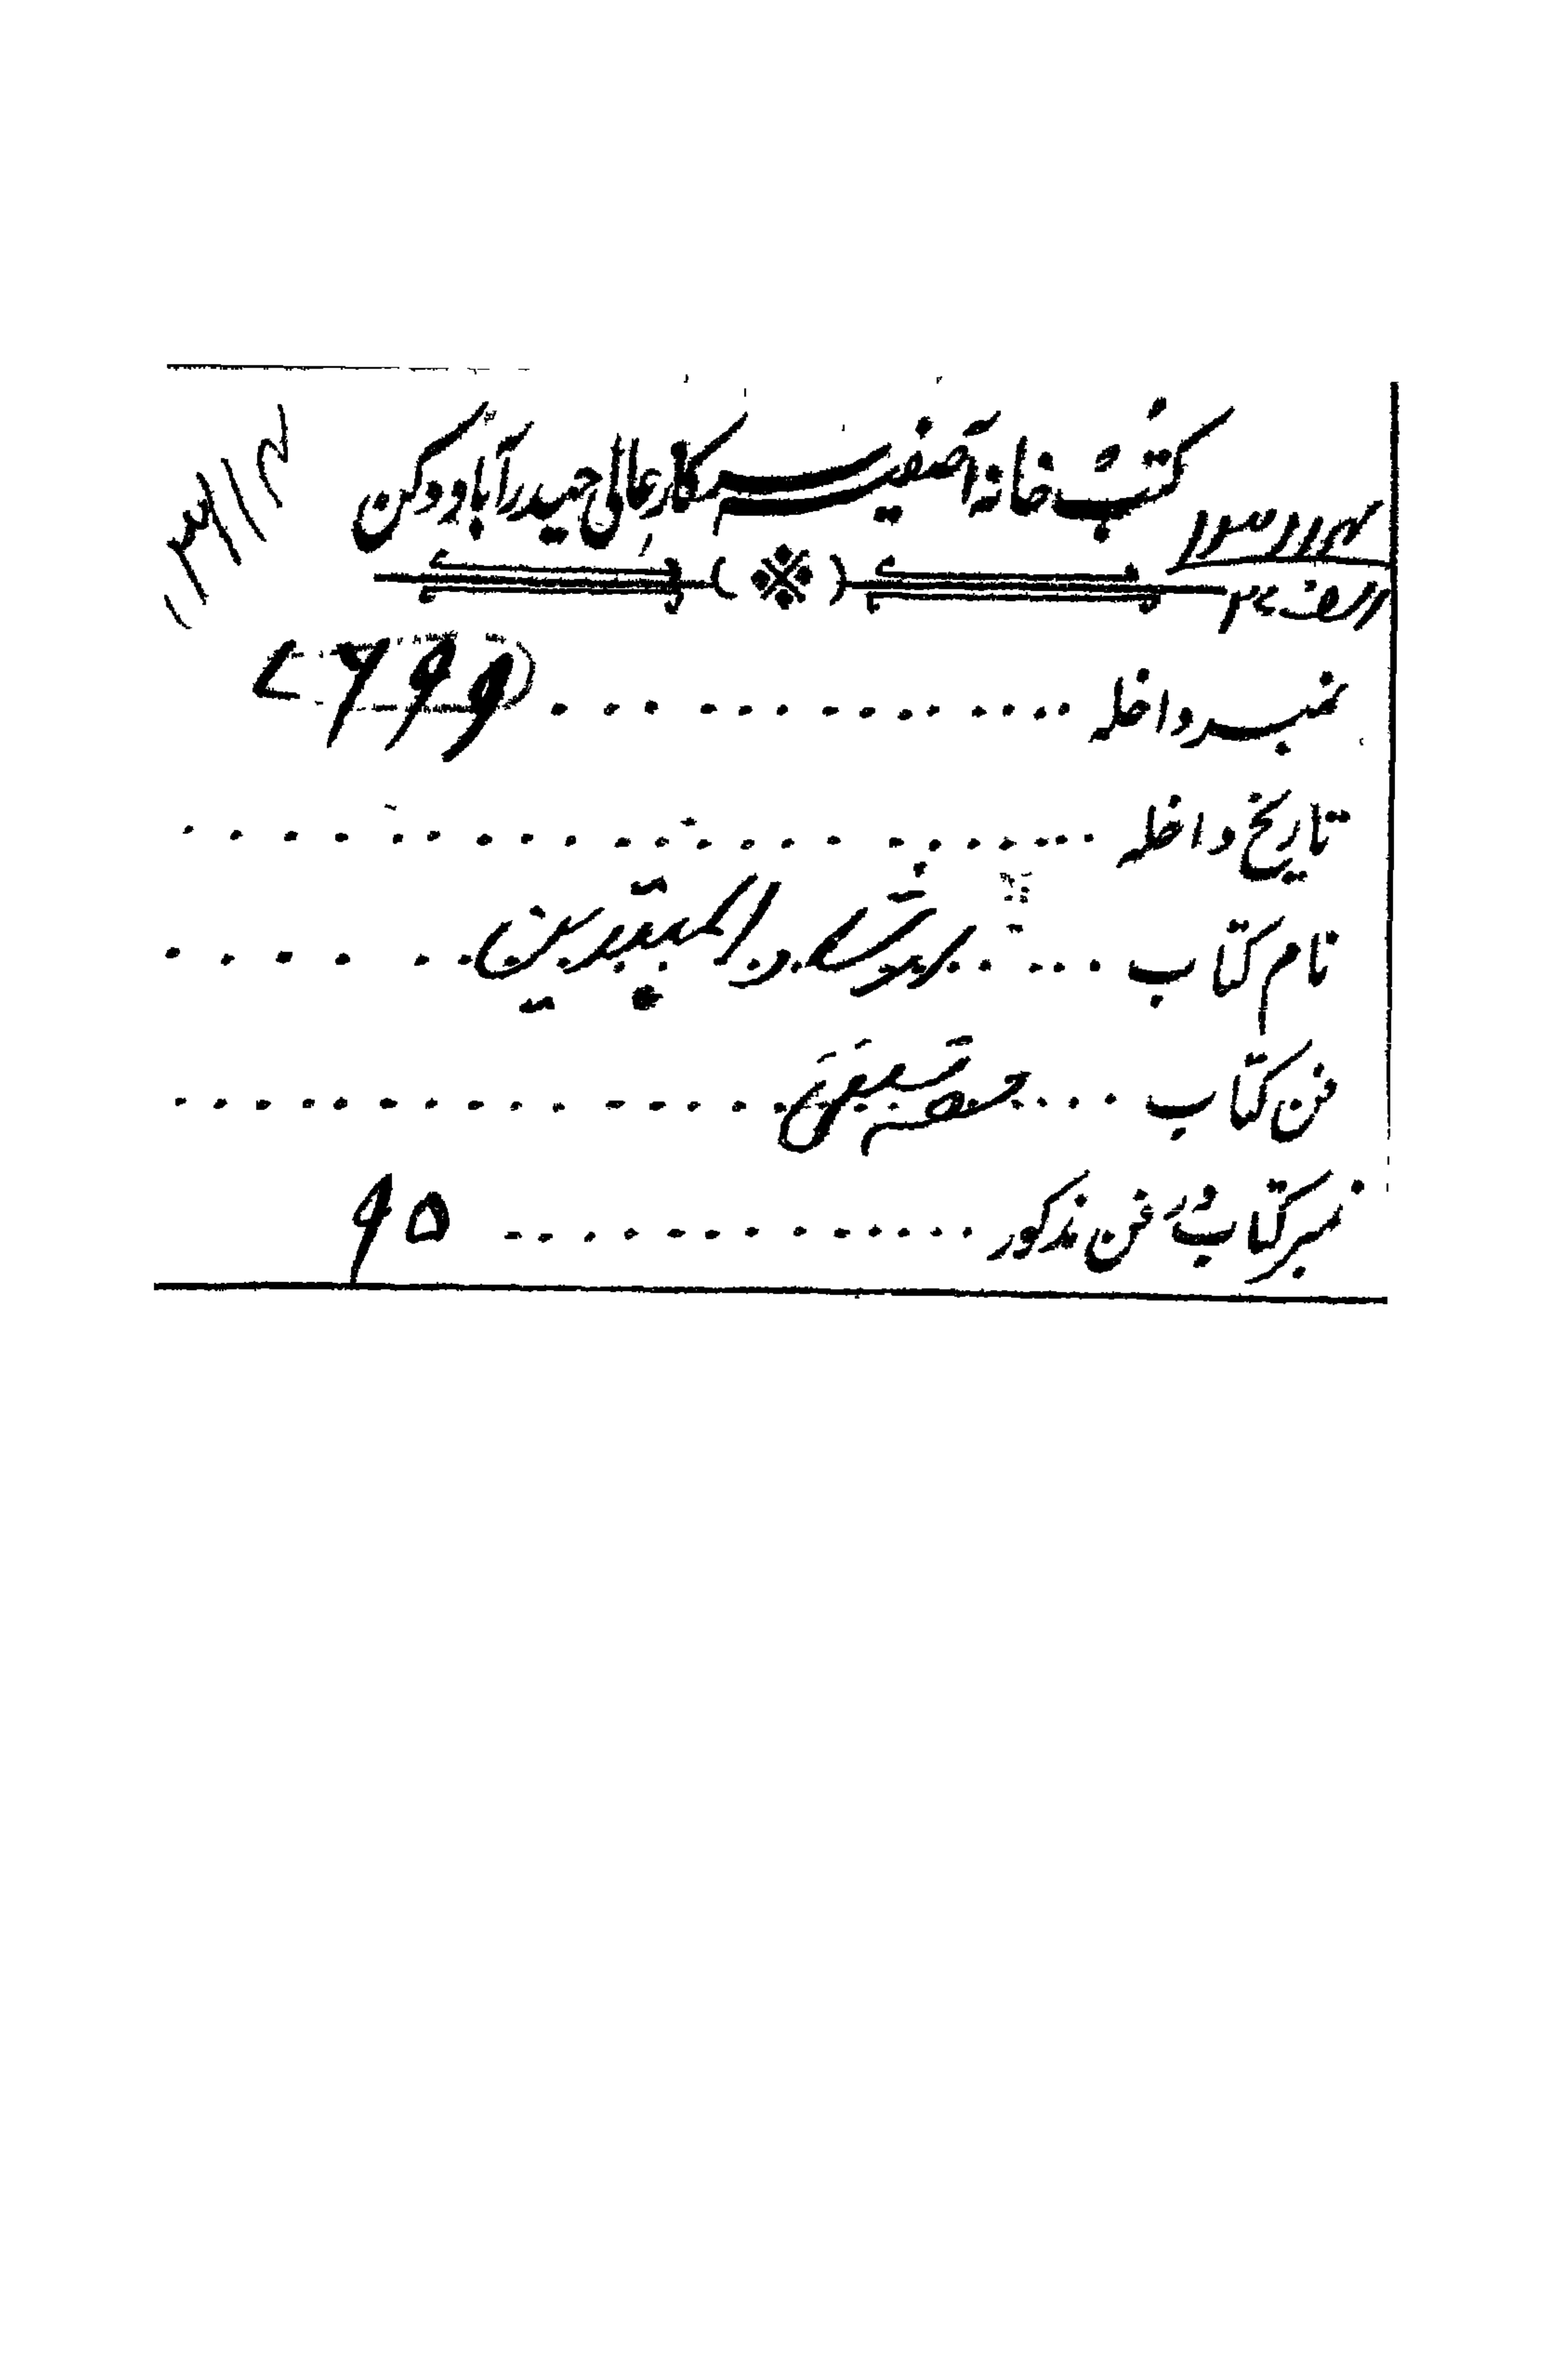 کتب خانہ آصفیہ سرکار عالی حیدرآباد دکن
نمبر داخلہ ۷۶۹۹
تاریخ داخلہ
نام کتاب ارشاد المبتدین
فن کتاب
نمبر کتاب فن مذکور ۹۵